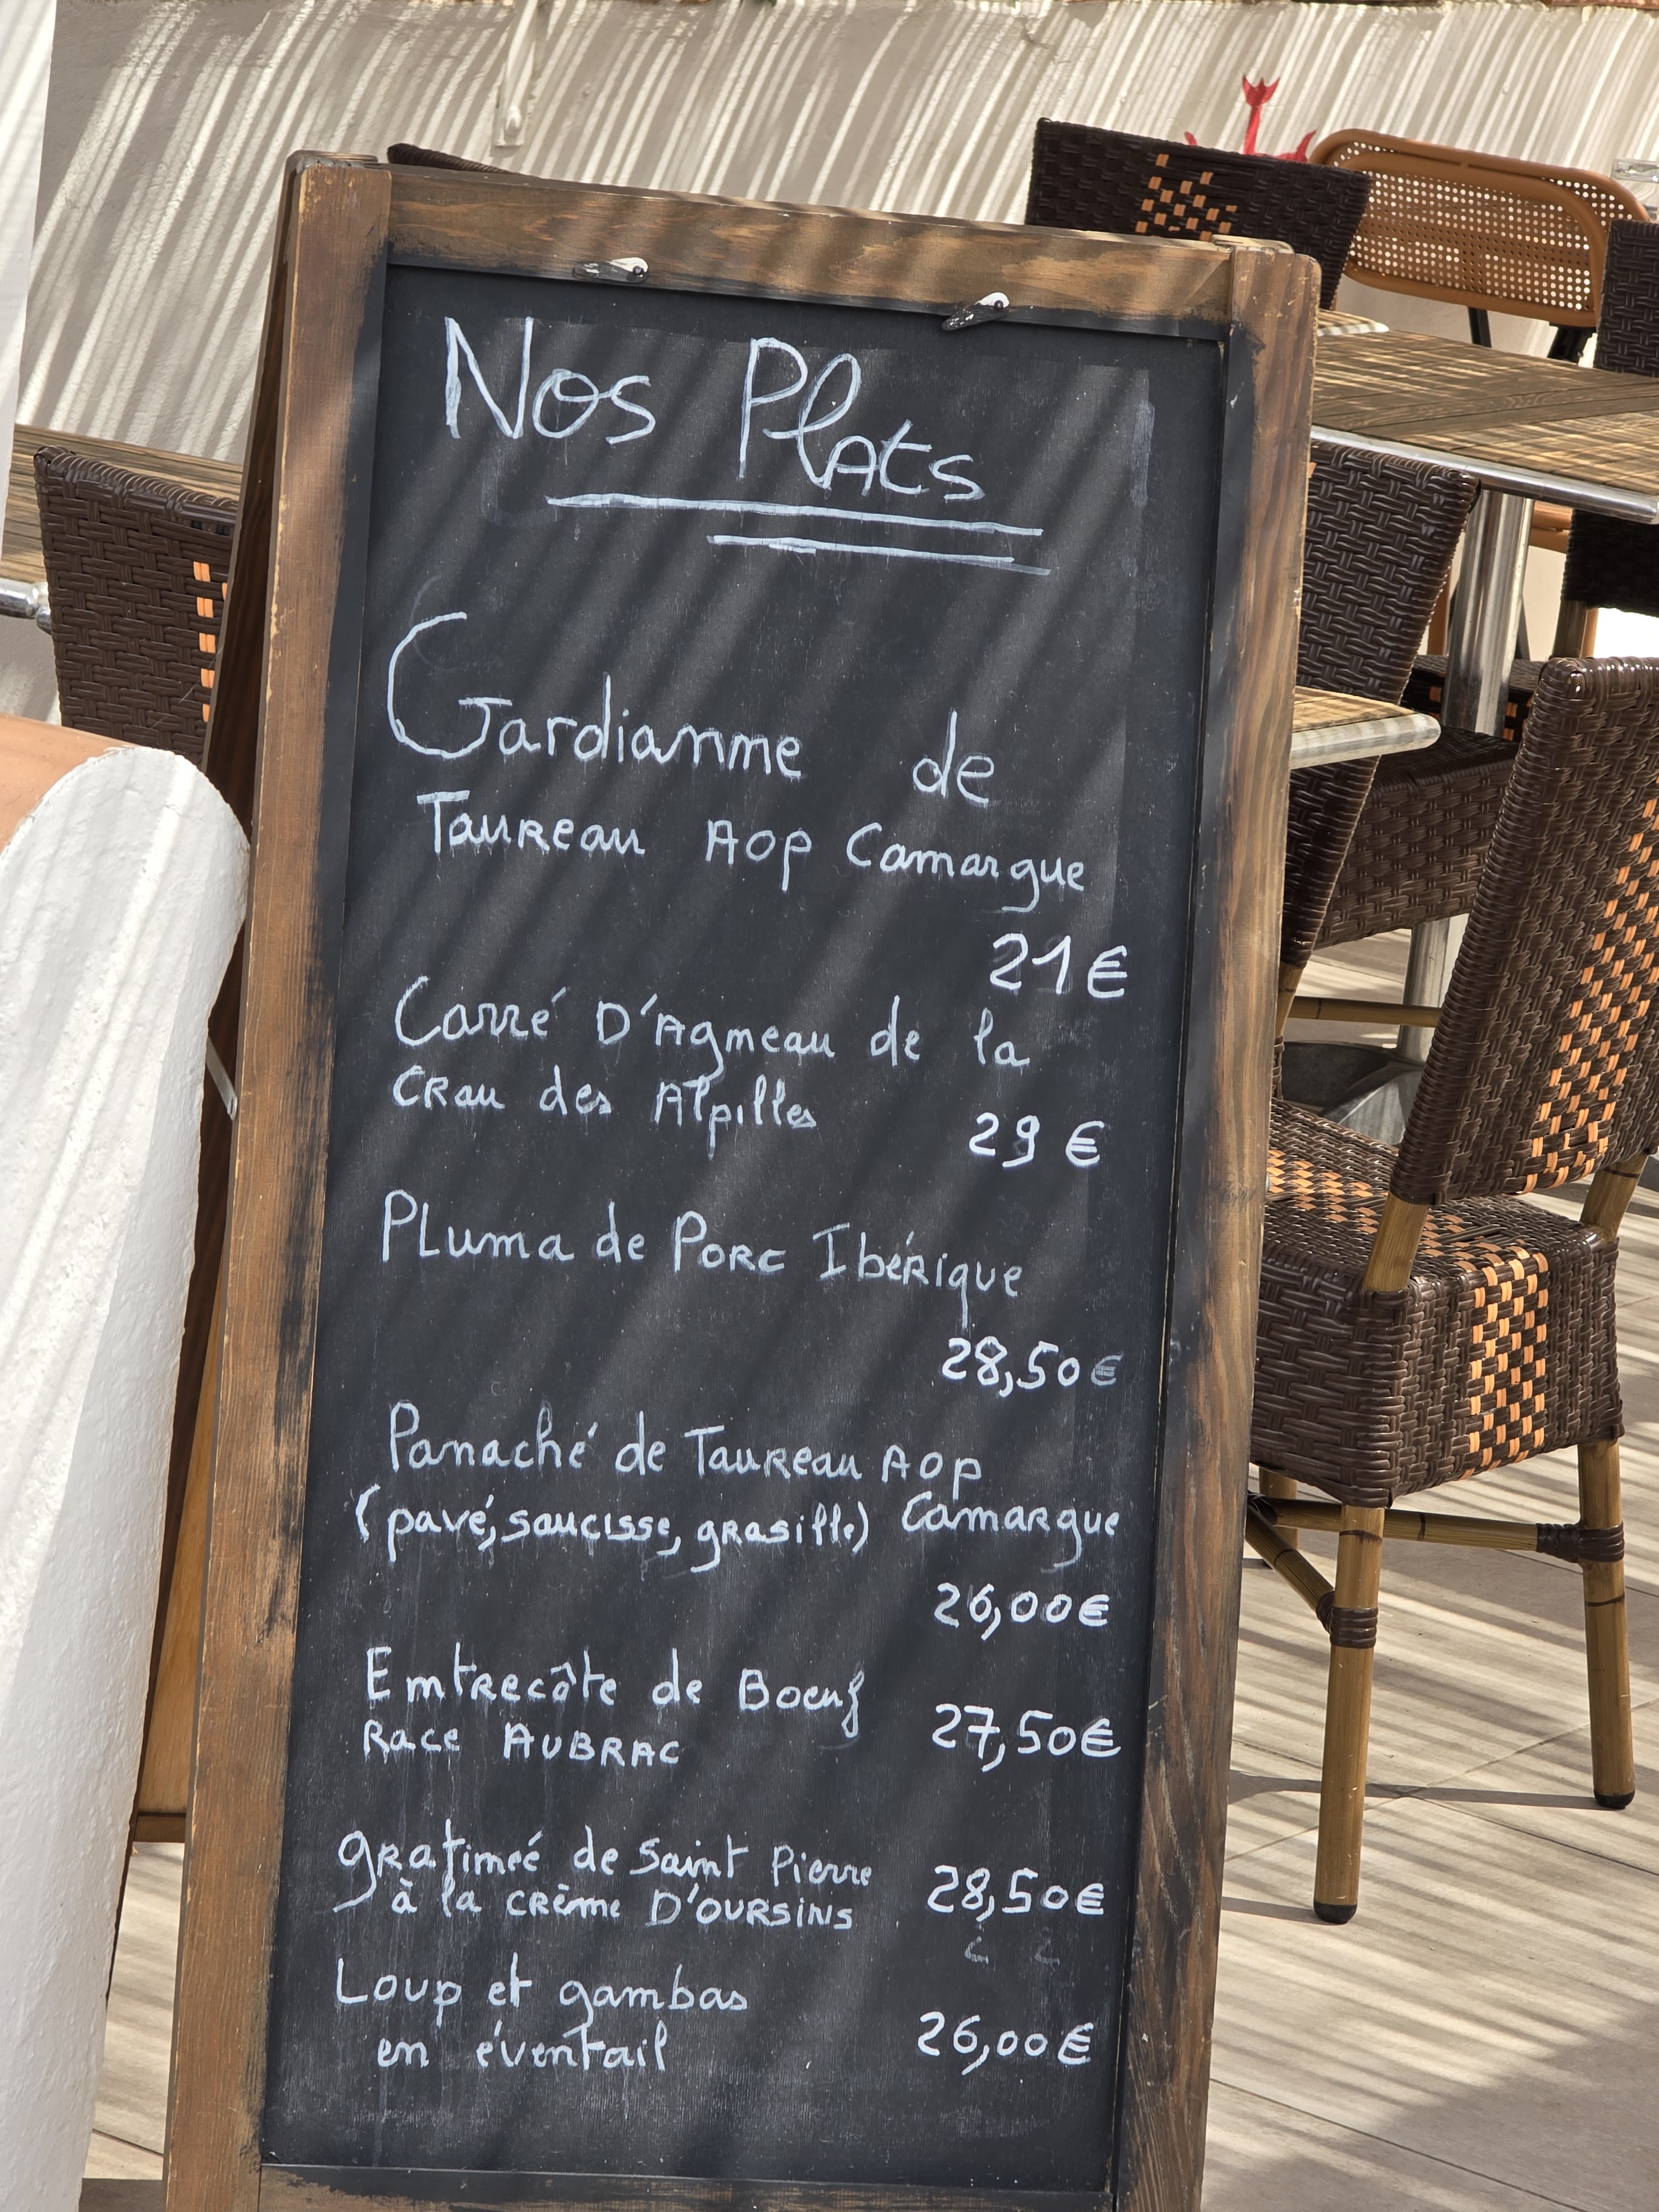 Nos Plats
Gardianne de
Taureau AOP Camargue
21€
Carré D'Agneau de la
Crau des Alpilles
29 €
Pluma de Porc Ibérique
28,50€
Panaché de Taureau AOP
(pavé, saucisse, grasille) Camargue
26,00€
Entrecôte de Boeuf
Race AUBRAC
27,50€
gratineé de Saint Pierre
à la crème D'OURSINS
28,50€
Loup et gambas
en éventail
26,00€